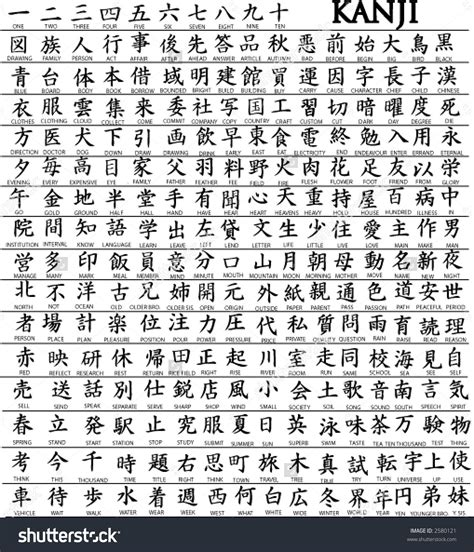 一 二 三 四 五 六 七 八 九 十 KANJI
ONE TWO THREE FOUR FIVE SIX SEVEN EIGHT NINE TEN
図 族 人 行 事 後 先 答 品 秋 悪 前 始 大 鳥 黒
DRAWING FAMILY PERSON ACT AFFAIR AFTER AHEAD ANSWER ARTICLE AUTUMN BAD BEFORE BEGIN BIG BIRD BLACK
青 台 体 本 借 域 明 建 館 買 運 因 字 長 子 漢
BLUE BOARD BODY BOOK BORROW BOUNDED BRIGHT BUILD BUILDING BUY CARRY CAUSE CHARACTER CHIEF CHILD CHINESE
衣 服 雲 集 来 委 社 写 国 工 習 切 暗 曜 度 死
CLOTHES CLOTHING CLOUD COLLECT COME COMMIT COMPANY COPY COUNTRY CRAFT CUSTOM CUT DARK DAY DEGREE DIE
方 医 犬 下 引 画 飲 早 東 食 電 終 勉 入 用 永
DIRECTION DOCTOR DOG DOWN DRAW DRAWING DRINK EARLY EAST EAT ELECTRICITY END ENDEAVOUR ENTER ERRAND ETERNAL
夕 毎 高 目 家 父 羽 料 野 火 肉 花 足 友 以 学
EVENING EVERY EXPENSIVE EYE FAMILY FATHER FEATHER FEE FIELD FIRE FLESH FLOWER FOOT FRIEND
午 金 地 半 堂 手 有 心 天 重 屋 百 病 中
GO GOLD GROUND HALF HALL HAND HAVE HEAR HEART HEAVENS HEAVY HOUSE HUNDRED ILLNESS IN
院 間 知 語 学 出 左 貸 文 生 少 住 愛 主 作 男
INSTITUTION INTERVAL KNOW LANGUAGE LEARN LEAVE LEFT LEND LETTER LIFE LITTLE LIVE LOVE MAIN MAKE MAN
営 多 印 飯 員 意 分 口 山 月 朝 母 動 名 新 夜
MANAGE MANY MARK MEAL MEMBER MIND MINUTE MOUTH MOUNTAIN MOON MORNING MOTHER MOVE NAME NEW NIGHT
北 不 洋 古 兄 姉 開 元 外 紙 親 通 色 道 安 世
NORTH NOT OCEAN OLD OLDER BRO. OLDER SIS. OPEN ORIGIN OUTSIDE PAPER PARENT PASS PASSION PATH PEACEFUL PERIOD
者 場 計 楽 位 注 圧 力 代 私 質 問 雨 育 読 理
PERSON PLACE PLAN PLEASURE POSITION POUR PRESSURE POWER PRICE PRIVATE QUALITY QUESTION RAIN READ REASON
赤 映 研 休 帰 田 正 起 川 室 走 同 校 海 見 自
RED REFLECT RESEARCH REST RETURN RICE FIELD RIGHT RISE RIVER ROOM RUN SAME SCHOOL SEA SEE SELF
売 送 話 別 仕 鋭 店 風 小 会 土 歌 音 言 気
SELL SEND SPEAK SEPARATE SERVE SHARP SHOP SMALL SOCIETY SOIL SONG SOUND SOUTH SPEECH SPIRIT
春 立 発 駅 止 究 服 夏 日 英 泳 味 茶 万 験 物
SPRING STAND START STATION STOP STUDY SUMMER SUN SWIM TASTE TEA TEN THOUSAND TEST THING
考 今 千 時 題 右 思 町 旅 木 真 試 転 宇 上 使
THINK THIS THOUSAND TIME TITLE RIGHT THINK TOWN TRAVEL TREE TRUE TRY TURN UP USE
車 待 歩 水 着 週 西 何 白 広 冬 世界 年 円 弟 妹
VEHICLE WAIT WALK WATER WEAR WEEK WEST WHAT WHITE WIDE WINTER WORLD YEAR YEN
shutterstock
IMAGE ID: 2580121
www.shutterstock.com